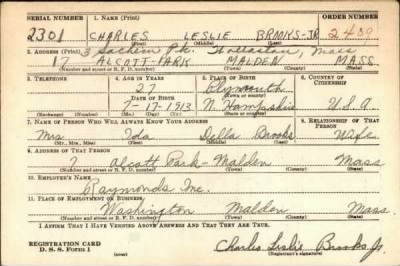 SERIAL NUMBER 1. NAME (Print) ORDER NUMBER
2301 CHARLES LESLIE BROOKS-JR 2439
(First) (Middle) (Last)
2. ADDRESS (Print) 3 Sachem Pk. Wollaston, Mass
17 ALCOTT-PARK MALDEN MASS
(Number and street or R. F. D. number) (Town) (County) (State)
3. TELEPHONE 4. AGE IN YEARS 5. PLACE OF BIRTH 6. COUNTRY OF CITIZENSHIP
27 Plymouth
DATE OF BIRTH (Town or county)
7-17-1913 N. Hampshire U.S.A.
(Exchange) (Number) (Mo.) (Day) (Yr.) (State or country)
7. NAME OF PERSON WHO WILL ALWAYS KNOW YOUR ADDRESS 8. RELATIONSHIP OF THAT PERSON
Mrs Ida Della Brooks Wife
(Mr., Mrs., Miss) (First) (Middle) (Last)
9. ADDRESS OF THAT PERSON
7 Alcott Park-Malden Mass
(Number and street or R. F. D. number) (Town) (County) (State)
10. EMPLOYER'S NAME
Raymonds Inc.
11. PLACE OF EMPLOYMENT OR BUSINESS
Washington Malden Mass.
(Number and street or R. F. D. number) (Town) (County) (State)
I AFFIRM THAT I HAVE VERIFIED ABOVE ANSWERS AND THAT THEY ARE TRUE.
REGISTRATION CARD
D. S. S. Form 1
Charles Leslie Brooks Jr.
(Registrant's signature)